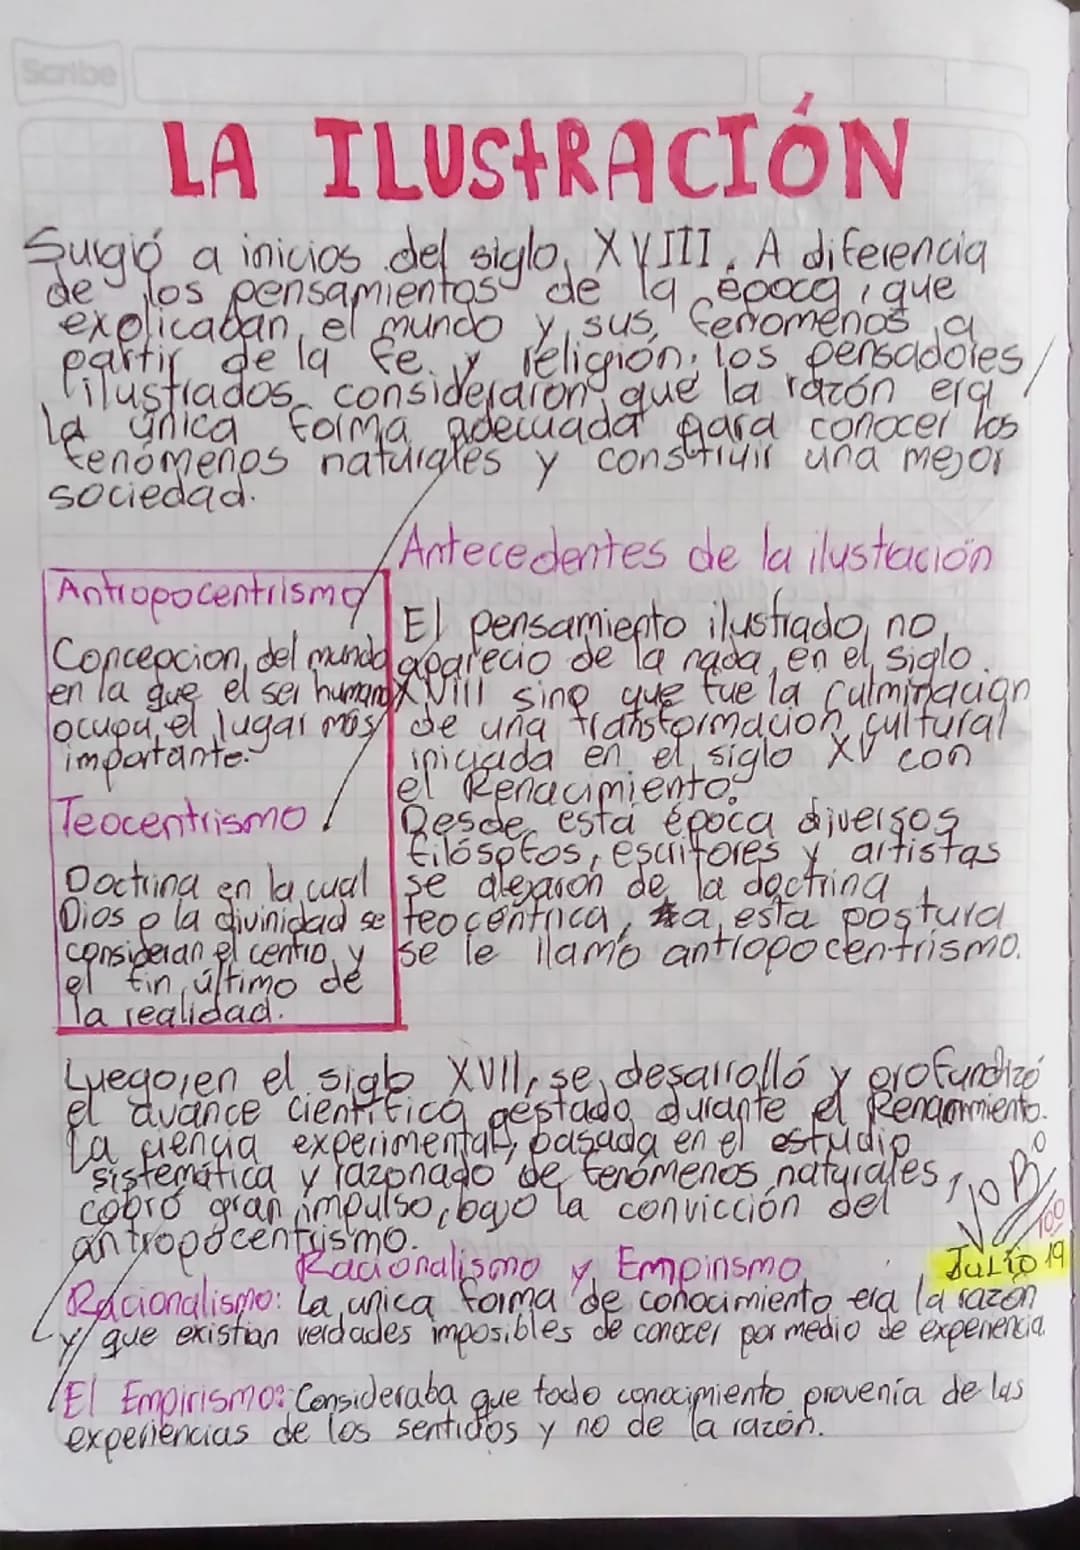 Scribe
LA ILUSTRACIÓN
Surgió a inicios del siglo XVIII. A diferencia
de los pensamientos de la época, que
explicaban el mundo y sus fenomenos a
partir de la fe y religión; los pensadores
ilustrados consideraron que la razón era
la única forma adecuada para conocer los
fenómenos naturales y construir una mejor
sociedad.
Antropocentrismo
Concepcion del mundo
en la que el ser humano
ocupa el lugar más
importante.
Teocentrismo
Doctrina en la cual
Dios o la divinidad se
consideran el centro y
el fin último de
la realidad.
Antecedentes de la ilustración
El pensamiento ilustrado no
aparecio de la nada en el siglo
XVIII sino que fue la culminación
de una transformacion cultural
iniciada en el siglo XV con
el Renacimiento.
Desde esta época diversos
filósofos, escritores y artistas
se alejarón de la doctrina
teocéntrica, a esta postura
se le llamó antropocentrismo.
Luego, en el siglo XVII, se desarrolló y profundizó
el avance científico gestado durante el Renacimiento.
La ciencia experimental, basada en el estudio
sistemática y razonado de fenómenos naturales,
cobró gran impulso, bajo la convicción del
antropocentrismo.
VoBo
100
JuLio 19
Racionalismo y Empirismo
Racionalismo: La unica forma de conocimiento era la razon
y que existian verdades imposibles de conocer por medio de experiencia.
El Empirismo: Consideraba que todo conocimiento provenía de las
experiencias de los sentidos y no de la razón.